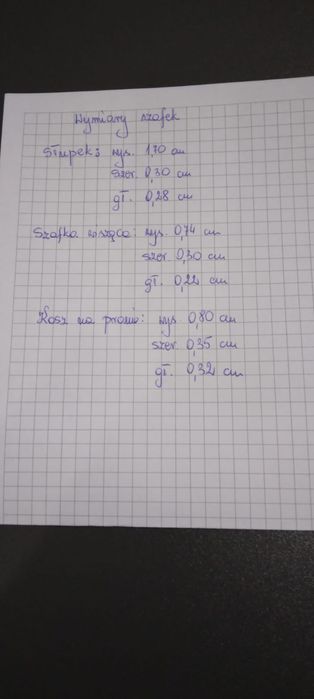 Wymiary szafek
Słupek: wys. 1,70 cm
szer. 0,30 cm
gł. 0,28 cm
Szafka wisząca: wys. 0,74 cm
szer. 0,30 cm
gł. 0,22 cm
Kosz na pranie: wys 0,80 cm
szer. 0,35 cm
gł. 0,32 cm